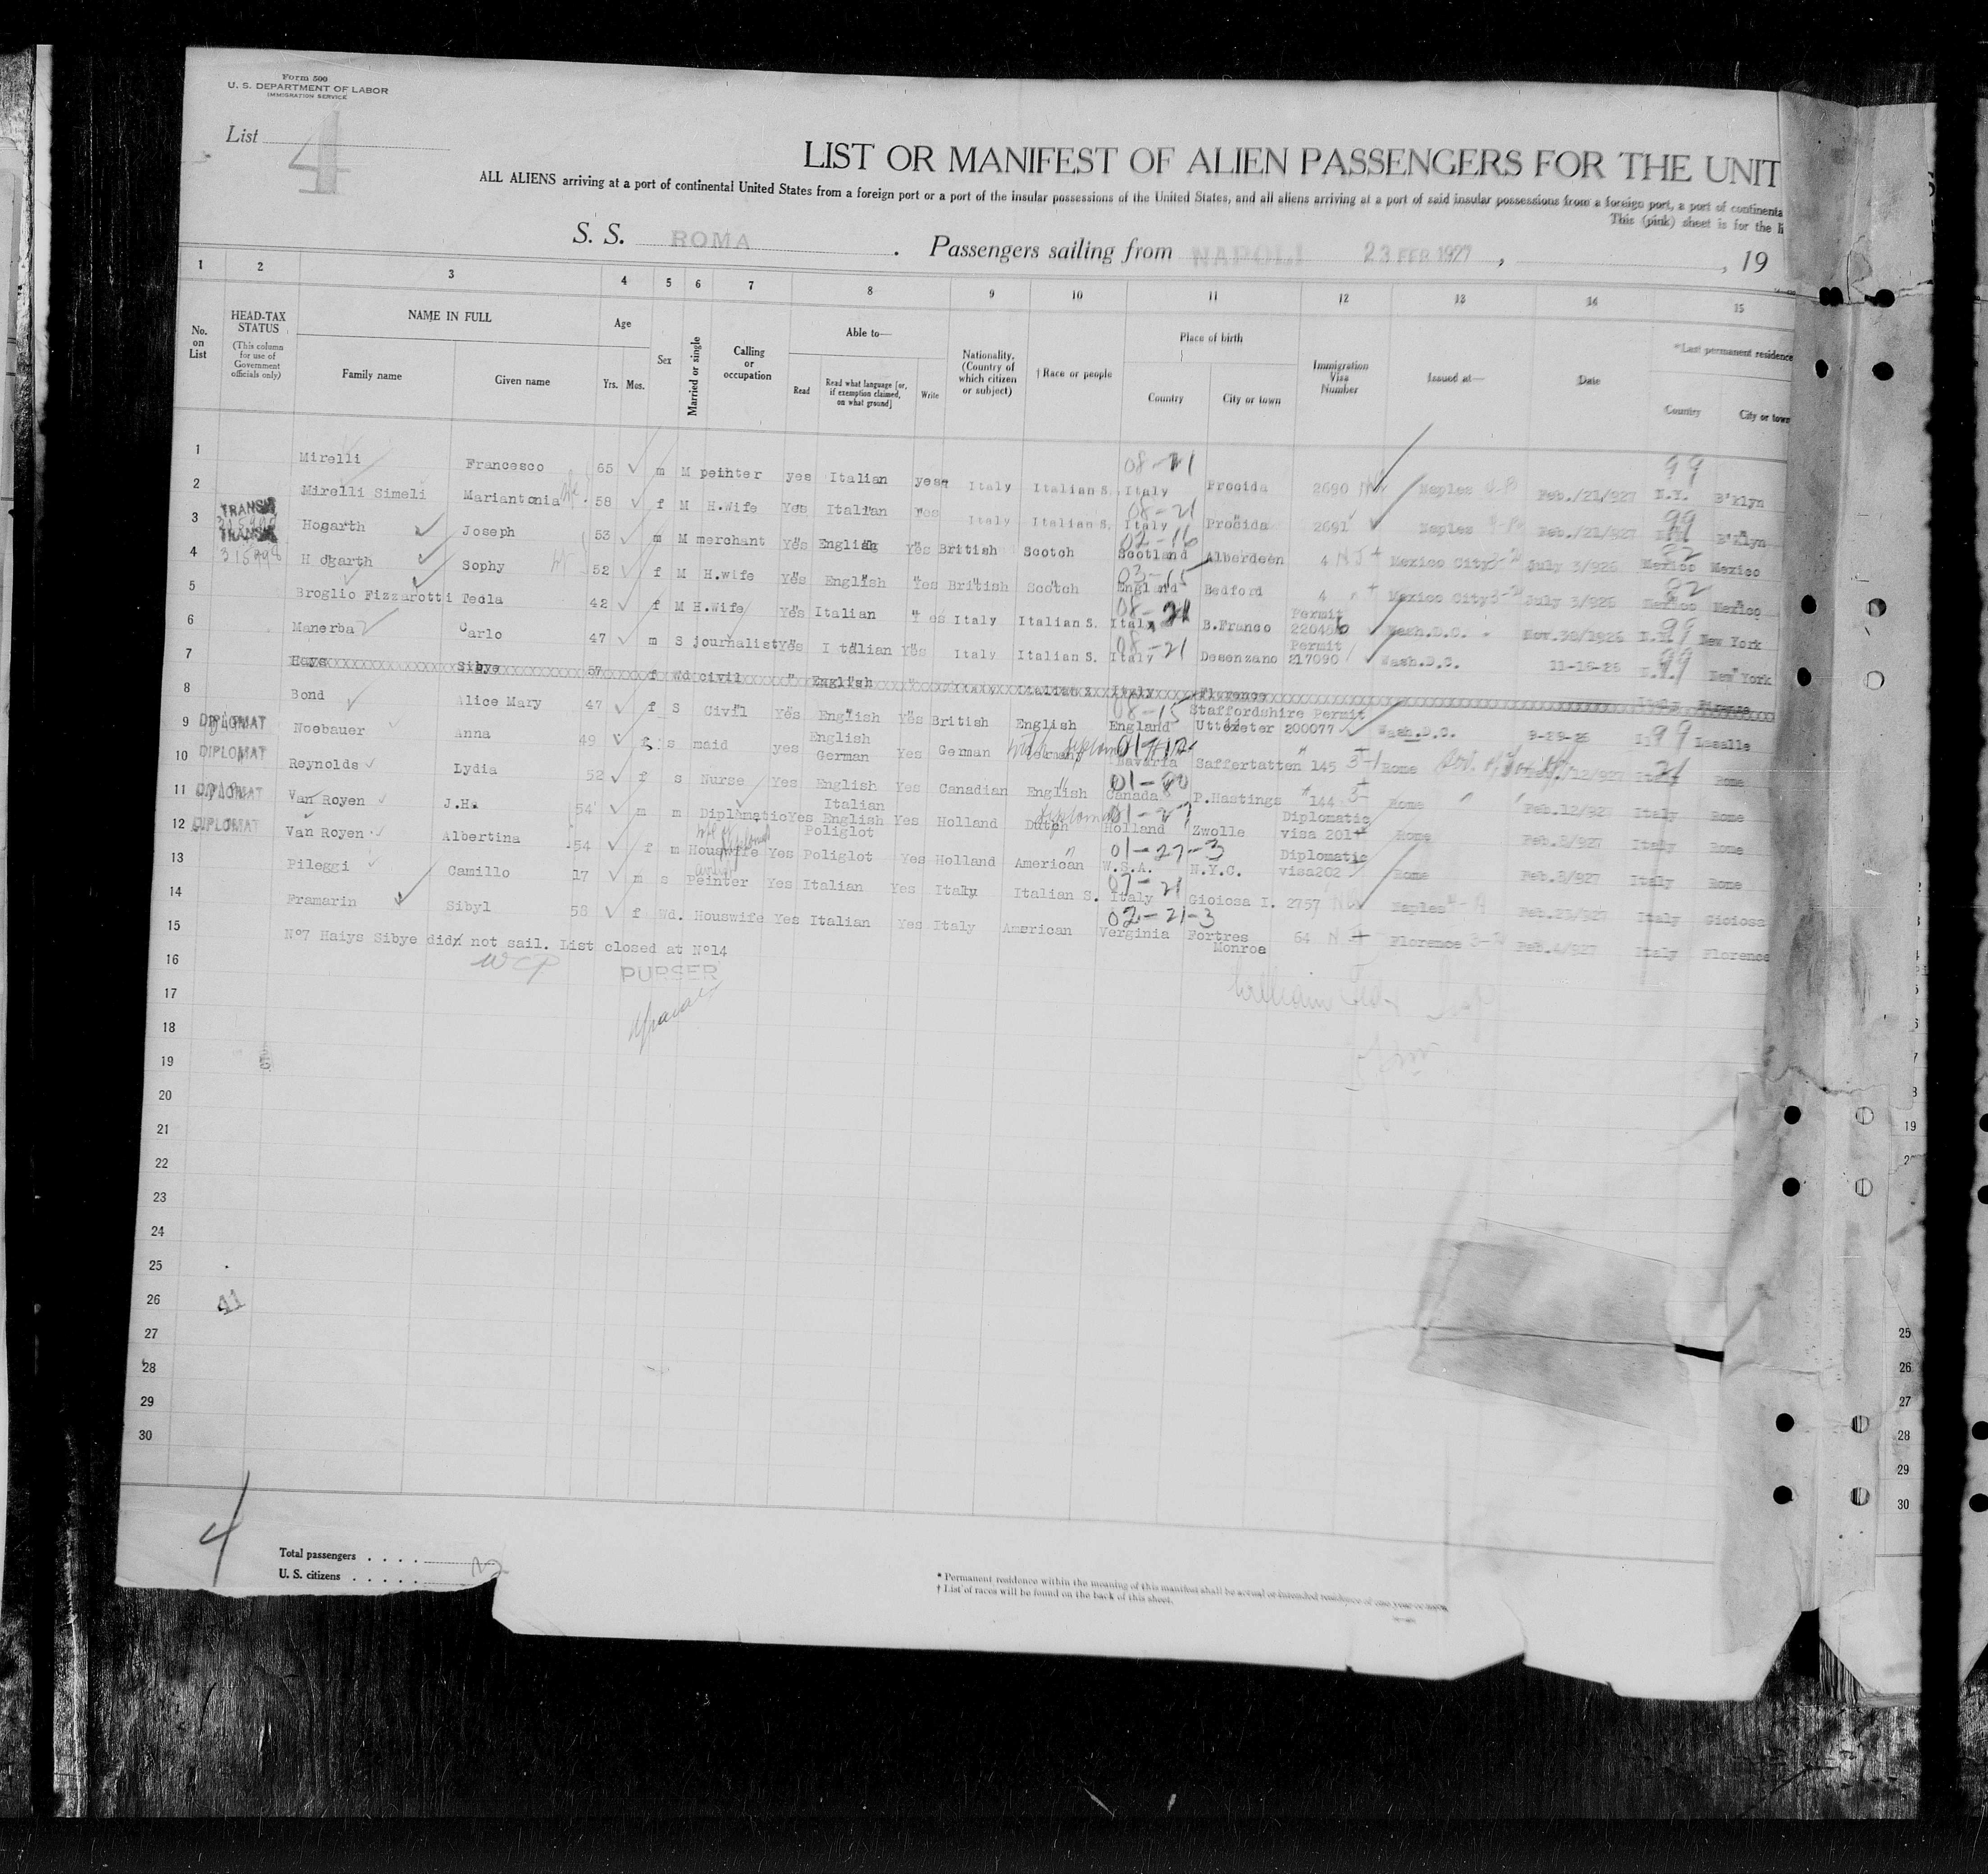 Form 500
U. S. DEPARTMENT OF LABOR
IMMIGRATION SERVICE
List 4
LIST OR MANIFEST OF ALIEN PASSENGERS FOR THE UNIT
ALL ALIENS arriving at a port of continental United States from a foreign port or a port of the insular possessions of the United States, and all aliens arriving at a port of said insular possessions from a foreign port, a port of continenta
This (pink) sheet is for the li
S. S. ROMA . Passengers sailing from NAPOLI 23 FEB 1927 , , 19
1 2 3 4 5 6 7 8 9 10 11 12 13 14 15
No. on List
HEAD-TAX STATUS
(This column for use of Government officials only)
NAME IN FULL
Family name Given name
Age
Yrs. Mos.
Sex
Married or single
Calling or occupation
Able to—
Read Read what language [or, if exemption claimed, on what ground] Write
Nationality. (Country of which citizen or subject)
† Race or people
Place of birth
Country City or town
Immigration Visa Number
Issued at—
Date
*Last permanent residence
Country City or town
1 Mirelli Francesco 65 m M peinter yes Italian yes Italy Italian S. Italy 08-21 Procida 2690 Naples Feb./21/927 N.Y. 99 B'klyn
2 Mirelli Simeli Mariantonia 58 f M H.wife Yes Italian Yes Italy Italian S. Italy 08-21 Procida 2691 Naples Feb./21/927 99 B'klyn
3 TRANSIT Hogarth Joseph 53 m M merchant Yes English Yes British Scotch Scotland 02-16 Alberdeen 4 Mexico City July 3/926 Mexico 82 Mexico
4 TRANSIT 315998 Hogarth Sophy 52 f M H.wife Yes English Yes British Scotch England 03-15 Bedford 4 Mexico City July 3/926 Mexico 82 Mexico
5 Broglio Fizzarotti Tecla 42 f M H.Wife Yes Italian Yes Italy Italian S. Italy 08-21 B.Franco Permit Wash.D.C. Nov.30/1926 N.Y. 99 New York
6 Manerba Carlo 47 m S journalist Yes Italian Yes Italy Italian S. Italy 08-21 Desenzano Permit 217090 Wash.D.C. 11-16-26 N.Y. 99 New York
7 Sibye 57 f Wd civil English Italy Florence Firenze
8 Bond Alice Mary 47 f S Civil Yes English Yes British English England 08-15 Staffordshire Uttoxeter Permit 200077 Wash.D.C. 9-29-26 99 Lasalle
9 DIPLOMAT Noebauer Anna 49 f s maid yes English German Yes German Germany Bavaria Saffertatten 145 3-1 Rome Feb./12/927 Italy Rome
10 DIPLOMAT Reynolds Lydia 52 f s Nurse Yes English Yes Canadian English Canada P.Hastings 144 Rome Feb.12/927 Italy Rome
11 DIPLOMAT Van Royen J.H. 54 m m Diplomatic Yes Italian English Poliglot Yes Holland Dutch Holland 01-27 Zwolle Diplomatic visa 201 Rome Feb.8/927 Italy Rome
12 DIPLOMAT Van Royen Albertina 54 f m Houswife Yes Poliglot Yes Holland American W.S.A. 01-27-3 N.Y.C. Diplomatic visa202 Rome Feb.8/927 Italy Rome
13 Pileggi Camillo 17 m s Peinter Yes Italian Yes Italy Italian S. Italy 07-21 Gioiosa I. 2757 Naples Italy Gioiosa
14 Framarin Sibyl 58 f Wd. Houswife Yes Italian Yes Italy American Verginia 02-21-3 Fortres Monroe 64 Florence Feb.4/927 Italy Florence
15 Nº7 Haiys Sibye did not sail. List closed at Nº14
16 WCP PURSER
17
18
19
20
21
22
23
24
25
26 41
27
28
29
30
4
Total passengers . . . .
U. S. citizens . . . . .
* Permanent residence within the meaning of this manifest shall be actual or intended residence of one year or more.
† List of races will be found on the back of this sheet.
19
25
26
27
28
29
30